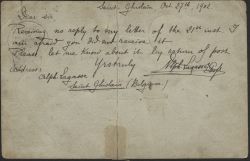 Saint Ghislain Oct 27th 1902
Dear Sir
Receiving no reply to my letter of the 21st inst. I
am afraid you did not receive it
Please let me know about it by return of post
Yrs truly
Address:
Saint Ghislain (Belgium)